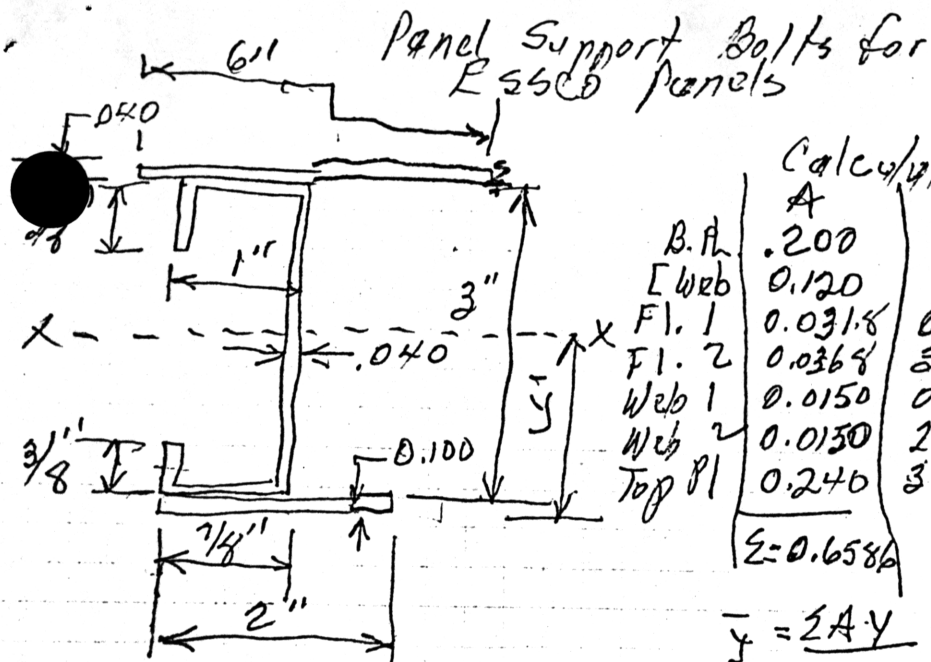 Panel Support Bolts for
ESSCO Panels
6"
.040
1"
3"
X
X
.040
ȳ
3/8"
0.100
7/8"
2"
A
B. PL .200
[ Web 0.120
Fl. 1 0.0318
Fl. 2 0.0368
Web 1 0.0150
Web 2 0.0150
Top Pl 0.240
Σ=0.6586
ȳ = ΣA·Y